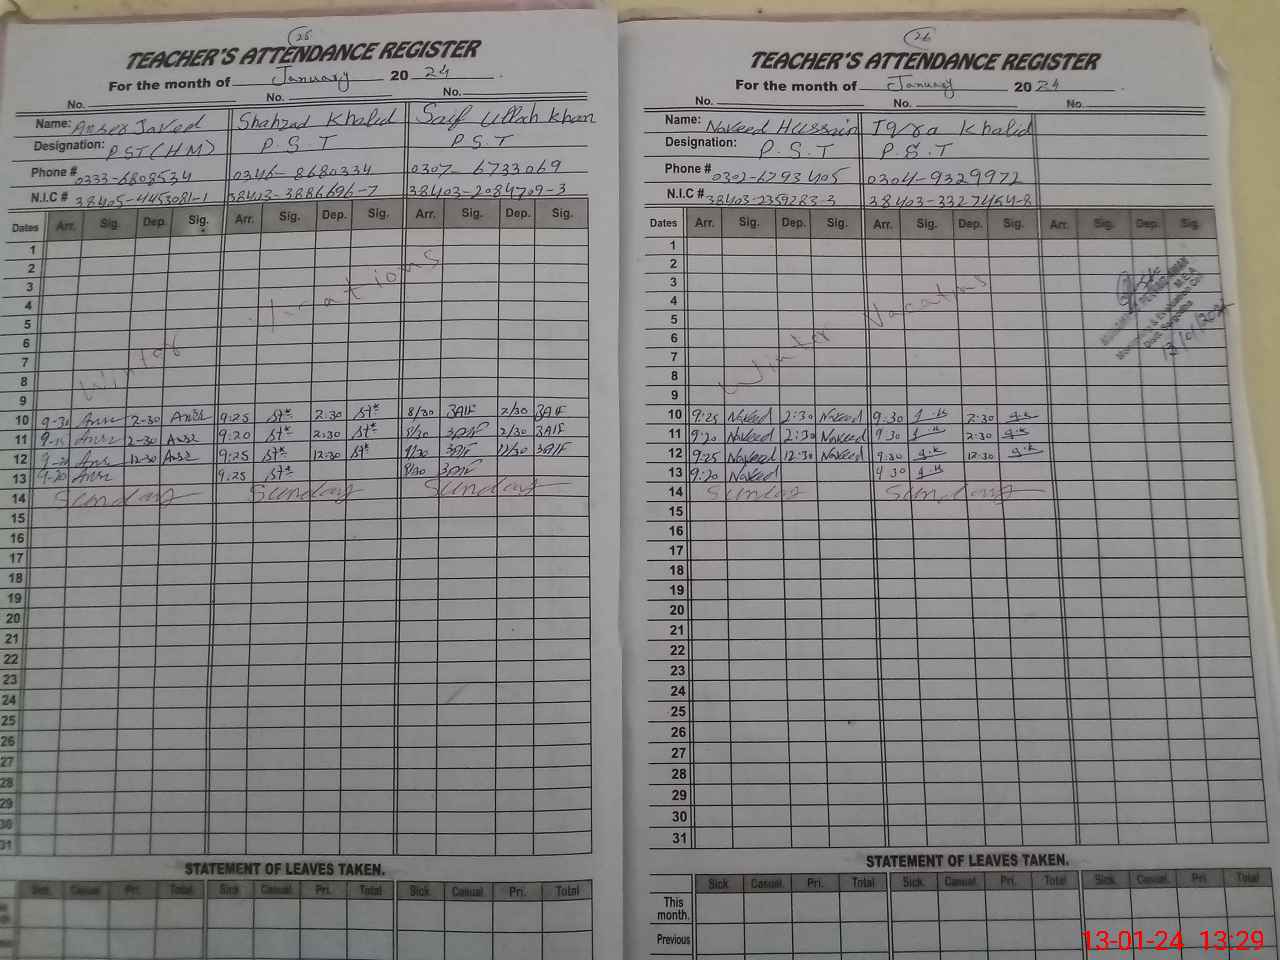 25
TEACHER'S ATTENDANCE REGISTER
For the month of January 2024.
No. No. No.
Name: Anser Javed Shahzad Khalid Saif Ullah Khan
Designation: PST (HM) P.S.T P.S.T
Phone # 0333-6808534 0346-8680334 0307-6733069
N.I.C # 38405-4453081-1 38403-3886696-7 38403-2084709-3
Dates Arr. Sig. Dep. Sig. Arr. Sig. Dep. Sig. Arr. Sig. Dep. Sig.
1
2
3
4
5
6
7
8
9
Winter Vacations
10 9-30 Ansr 2-30 Ansr 9:25 2:30 8/30 SAIF 2/30 SAIF
11 Ansr 2-30 Ansr 9:20 2:30 8/30 SAIF 2/30 SAIF
12 9-20 Ansr 12-30 Ansr 9:25 12:30 8/30 SAIF 12/30 SAIF
13 9-20 Ansr 9:25 8/30 SAIF
14 Sunday Sunday Sunday
15
16
17
18
19
20
21
22
23
24
25
26
27
28
29
30
31
STATEMENT OF LEAVES TAKEN.
Sick. Casual. Pri. Total Sick Casual. Pri. Total Sick. Casual. Pri. Total
26
TEACHER'S ATTENDANCE REGISTER
For the month of January 2024.
No. No. No
Name: Naveed Hussain Iqra Khalid
Designation: P.S.T P.S.T
Phone # 0302-6793405 0304-9329972
N.I.C # 38403-2359283-3 38403-3327454-8
Dates Arr. Sig. Dep. Sig. Arr. Sig. Dep. Sig. Arr. Sig. Dep. Sig.
1
2
3
4
5
6
7
8
9
Winter Vacations
M.E.A
Monitoring & Evaluation
Distt. Sargodha
13/01/2024
10 9:25 Naveed 2:30 Naveed 9:30 I.K 2:30 I.K
11 9:20 Naveed 2:30 Naveed 9:30 I.K 2:30 I.K
12 9:25 Naveed 12:30 Naveed 9:30 I.K 12:30 I.K
13 9:20 Naveed 9:30 I.K
14 Sunday Sunday
15
16
17
18
19
20
21
22
23
24
25
26
27
28
29
30
31
STATEMENT OF LEAVES TAKEN.
Sick. Casual. Pri. Total Sick. Casual. Pri. Total Sick. Casual. Pri. Total
This month.
Previous
13-01-24 13:29